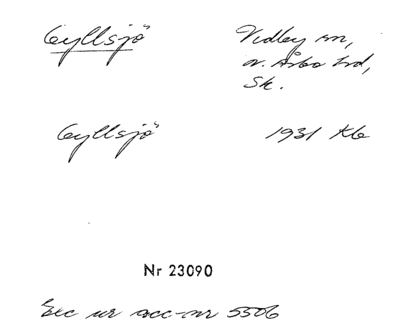 Gyllsjö Vedby sn,
n. Åsbo hd,
Sk.
Gyllsjö 1931 Kle
Nr 23090
Exc ur acc-nr 5506